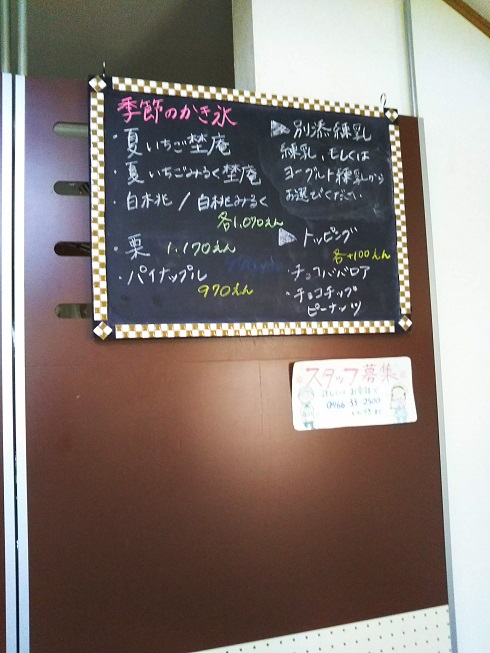 季節のかき氷
・夏いちご埜庵
・夏いちごみるく埜庵
・白桃 / 白桃みるく
各1,070えん
・栗 1,170えん
・パイナップル
970えん
▶別添練乳
練乳、もしくは
ヨーグルト練乳から
お選びください
▶トッピング
各+100えん
・チョコババロア
・チョコチップ
ピーナッツ
スタッフ募集
0966 33-2500